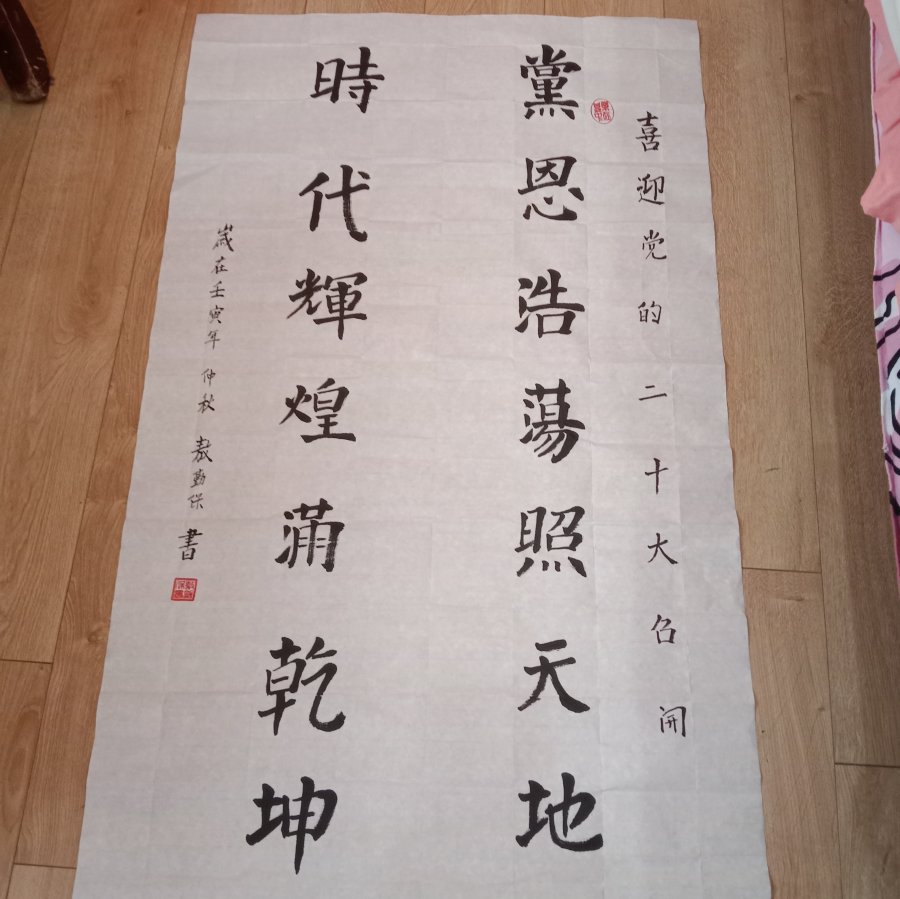 喜迎党的二十大召开
黨恩浩蕩照天地
時代輝煌滿乾坤
歲在壬寅年仲秋敖勤保書